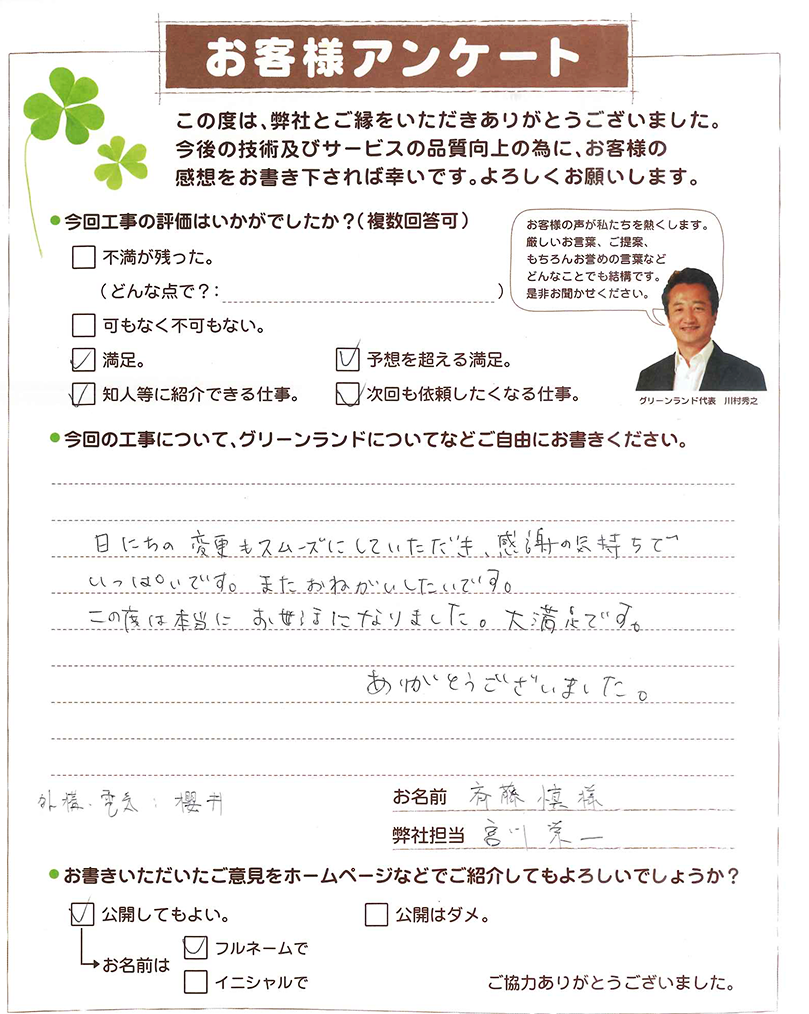 お客様アンケート
この度は、弊社とご縁をいただきありがとうございました。
今後の技術及びサービスの品質向上の為に、お客様の
感想をお書き下されば幸いです。よろしくお願いします。
●今回工事の評価はいかがでしたか？（複数回答可）
お客様の声が私たちを熱くします。
厳しいお言葉、ご提案、
もちろんお誉めの言葉など
どんなことでも結構です。
是非お聞かせください。
グリーンランド代表 川村秀之
不満が残った。
（どんな点で？: ）
可もなく不可もない。
満足。 予想を超える満足。
知人等に紹介できる仕事。 次回も依頼したくなる仕事。
●今回の工事について、グリーンランドについてなどご自由にお書きください。
日にちの変更もスムーズにしていただき、感謝の気持ちで
いっぱいです。またおねがいしたいです。
この度は本当にお世話になりました。大満足です。
ありがとうございました。
外構・電気：櫻井
お名前 斉藤慎様
弊社担当 宮川栄一
●お書きいただいたご意見をホームページなどでご紹介してもよろしいでしょうか？
公開してもよい。 公開はダメ。
お名前は フルネームで
イニシャルで
ご協力ありがとうございました。